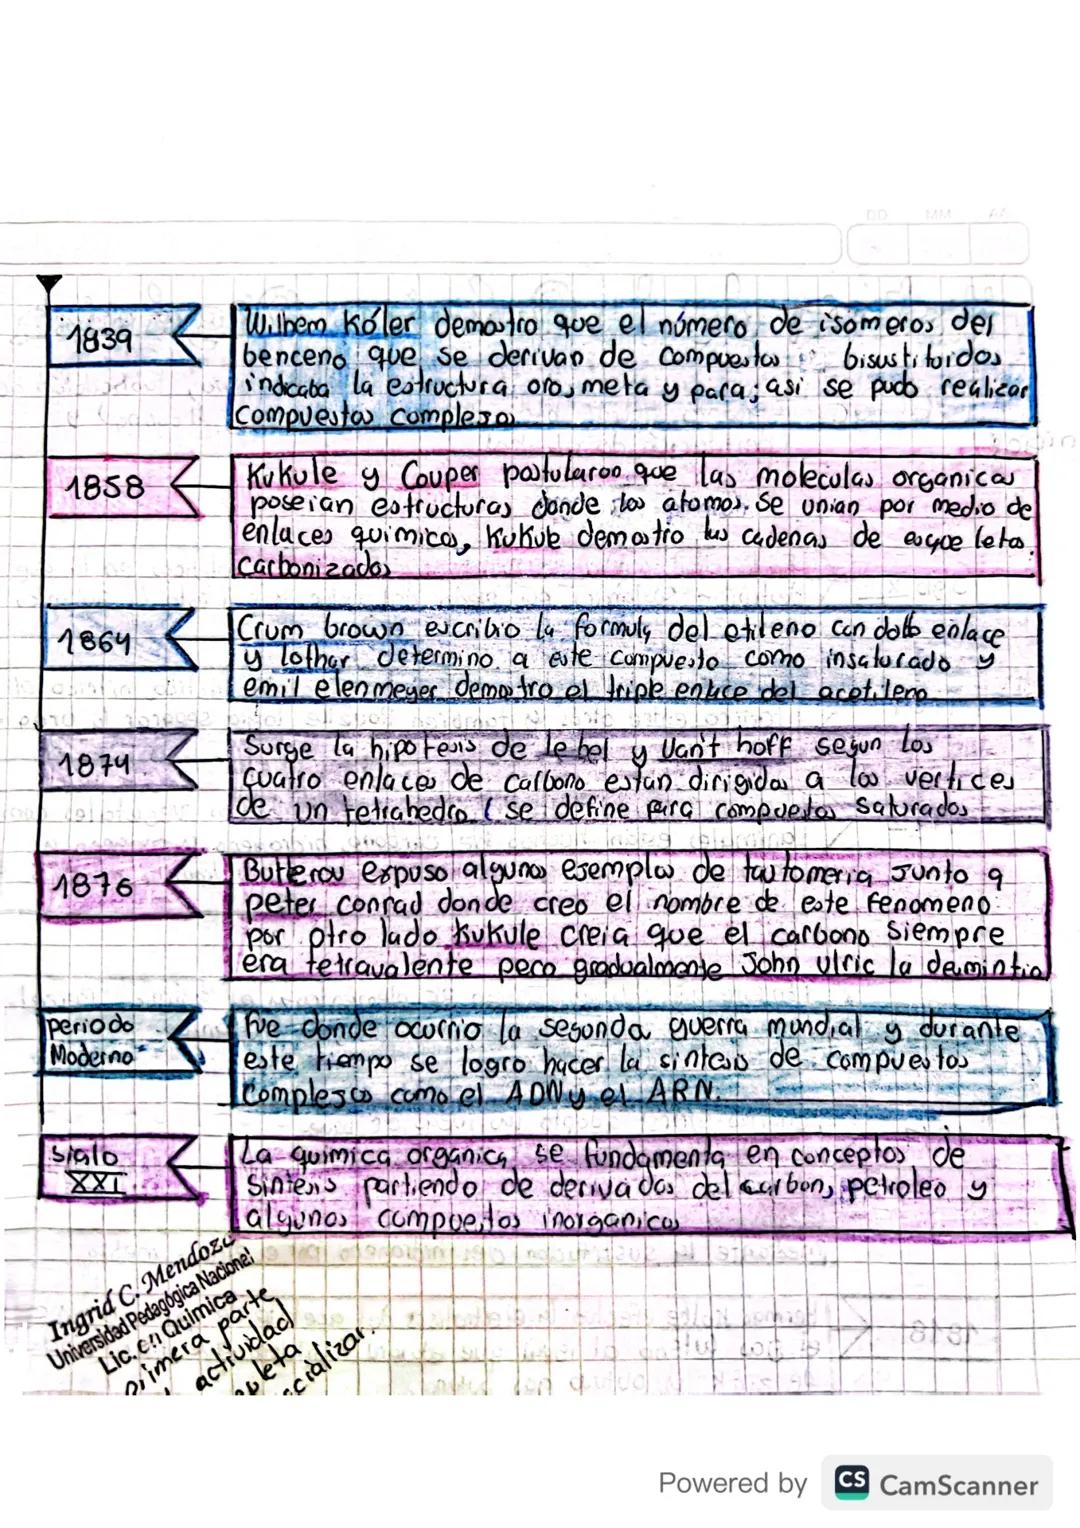 DD MM AA
1839
Wilhem Kóler demostro que el número de isomeros del
benceno que se derivan de compuestos bisustituidos
indicaba la estructura oro, meta y para; asi se pudo realizar
compuestos complejos
1858
Kukule y Couper postularon que las moleculas organicas
poseian estructuras donde los atomos se unian por medio de
enlaces quimicos, Kukule demostro las cadenas de esqueletos
Carbonizados
1864
Crum brown escribio la formula del etileno con doble enlace
y lothar determino a este compuesto como insaturado y
emil elenmeyer demostro el triple enlace del acetileno
1874
Surge la hipotesis de le bel y Van't hoff segun los
cuatro enlaces de carbono estan dirigidos a los vertices
de un tetrahedro (se define para compuestos saturados
1876
Butlerov expuso algunos ejemplos de tautomeria Junto a
peter conrad donde creo el nombre de este fenomeno
por otro lado Kukule creia que el carbono siempre
era tetravalente pero gradualmente John ulric la desmintio
periodo
Moderno
Fue donde ocurrio la segunda guerra mundial y durante
este tiempo se logro hacer la sintesis de compuestos
Complejos como el ADN y el ARN.
Siglo
XXI
La quimica organica se fundamenta en conceptos de
Sintesis partiendo de derivados del carbon, petroleo y
algunos compuestos inorganicos
Ingrid C. Mendoza
Universidad Pedagógica Nacional
Lic. en Quimica
primera parte
actividad
Powered by CS CamScanner